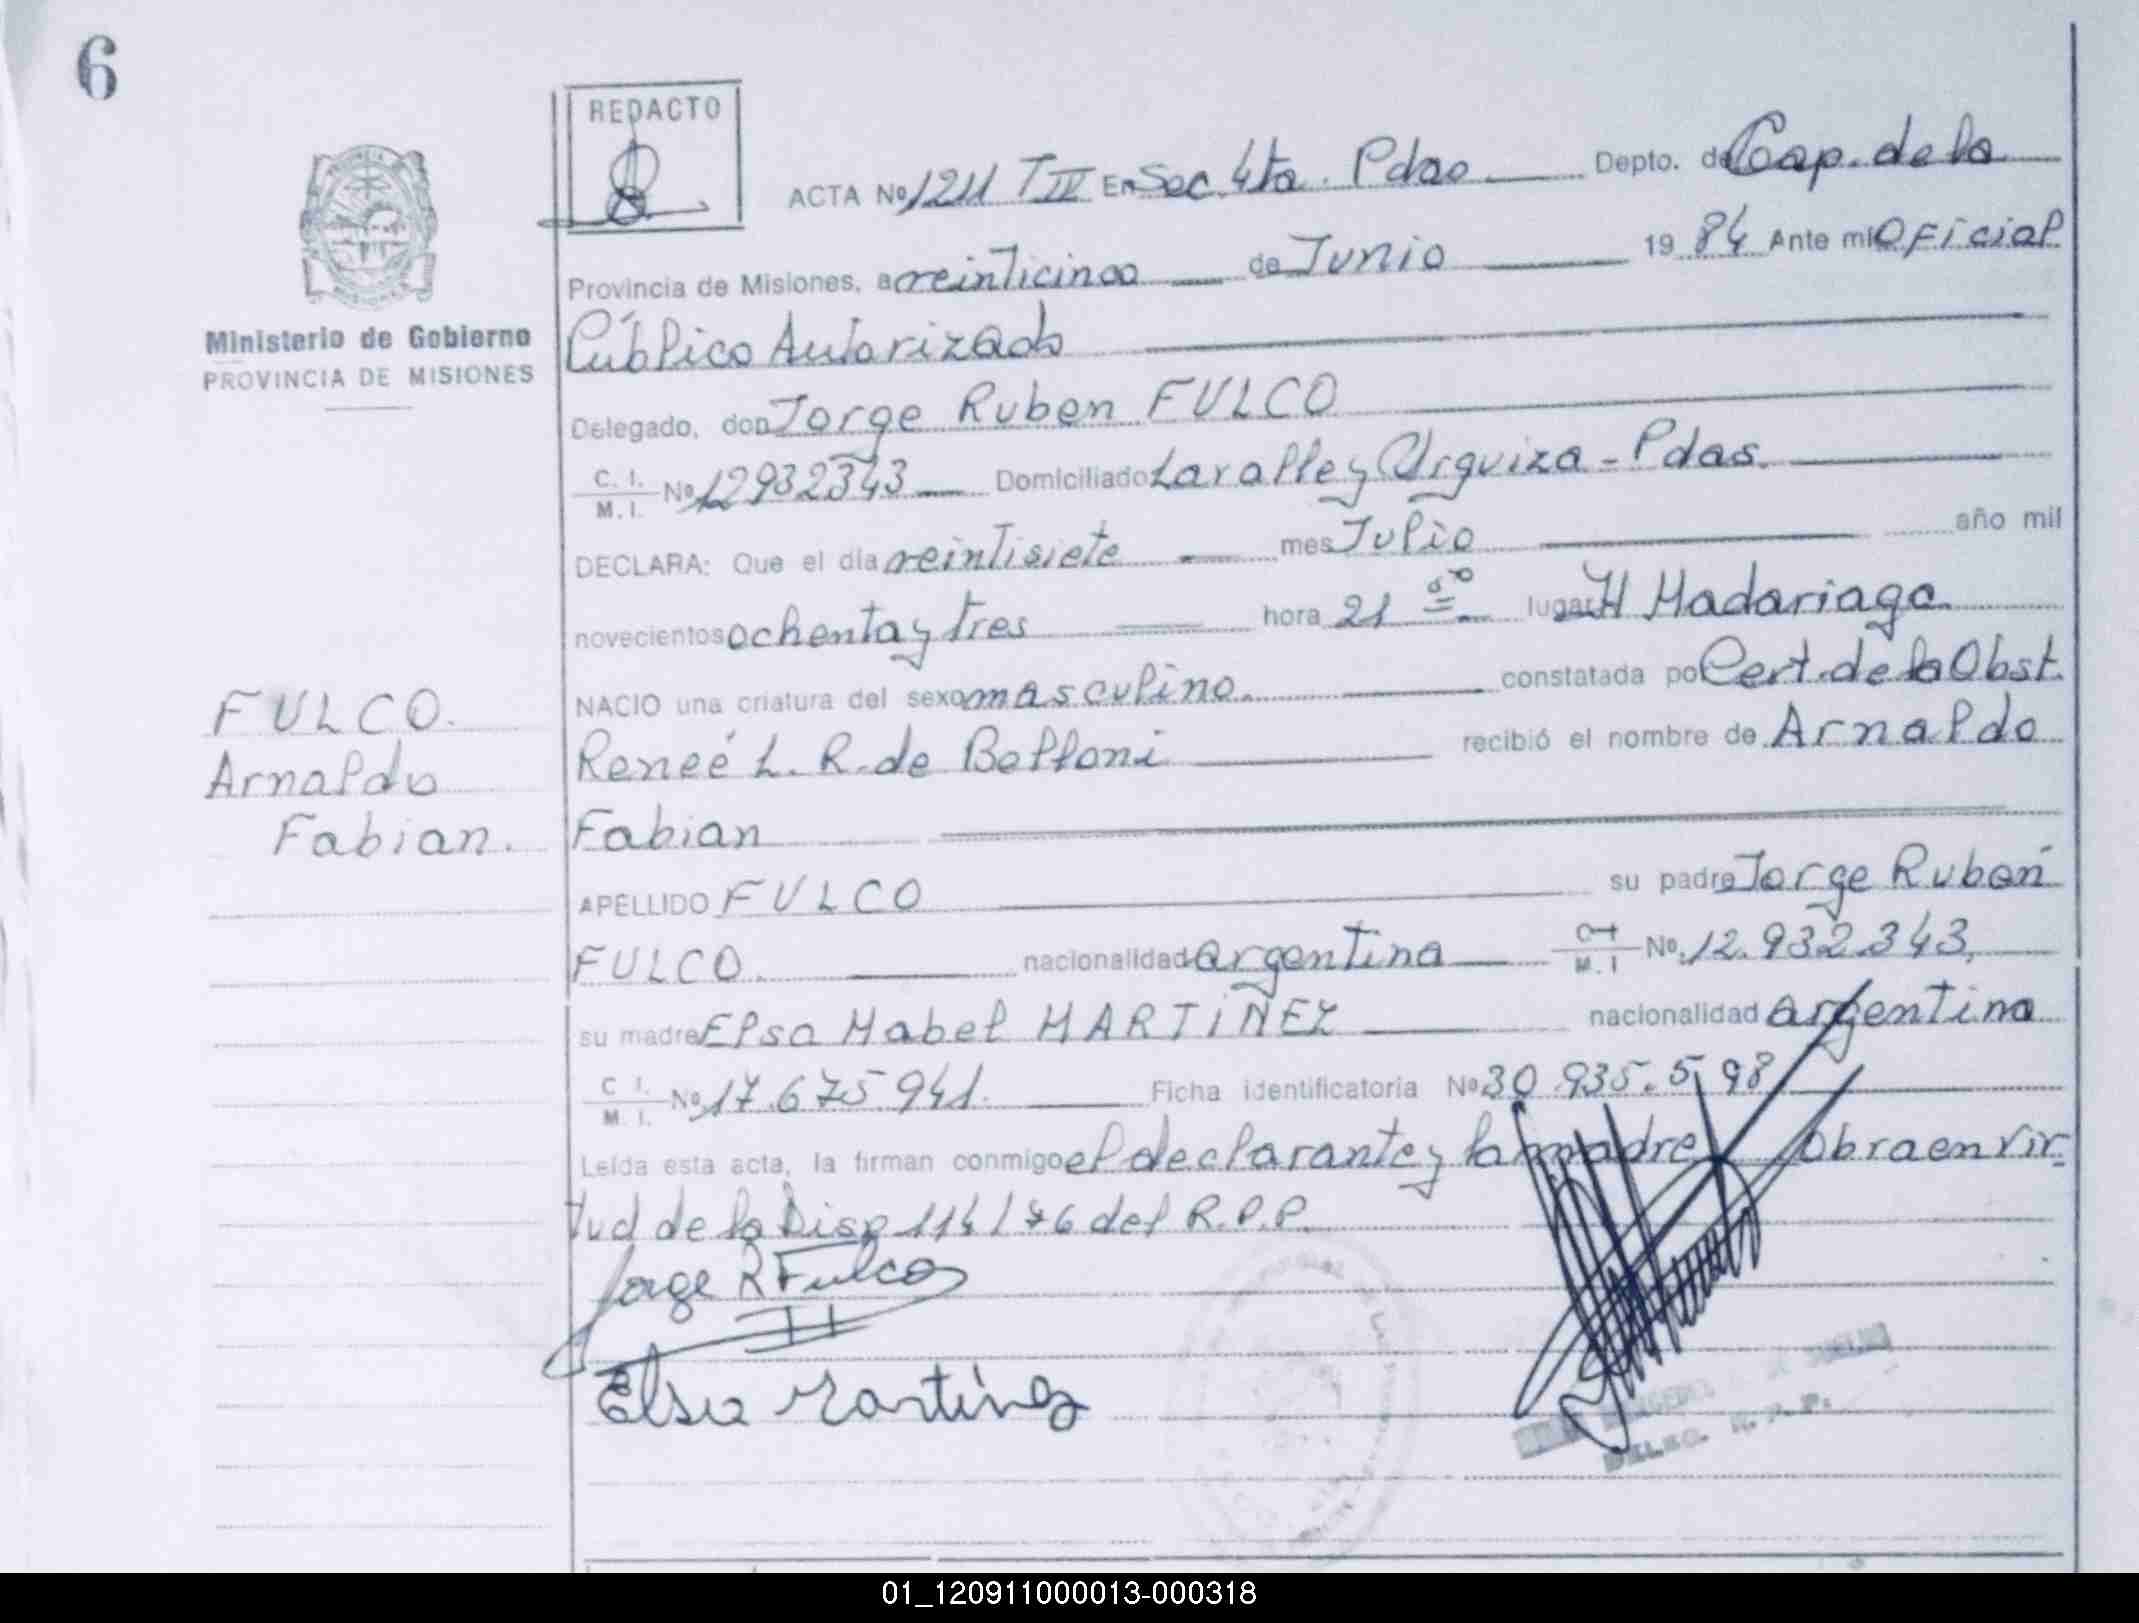 6
REDACTO
ACTA Nº 1211 T III En Sec. 4ta. Pdas Depto. de Cap. de la
Provincia de Misiones, a veinticinco de Junio 19 84 Ante mi Oficial
Público Autorizado
Ministerio de Gobierno
PROVINCIA DE MISIONES
Delegado, don Jorge Ruben FULCO
C. I. / M. I. Nº 12932343 Domiciliado Lavalle y Urquiza - Pdas.
DECLARA: Que el día veintisiete mes Julio año mil
novecientos ochenta y tres hora 21 lugar H Madariaga
NACIO una criatura del sexo masculino. constatada po Cert. de la Obst.
FULCO.
Reneé L. R. de Belloni recibió el nombre de Arnaldo
Arnaldo
Fabian.
Fabian
APELLIDO FULCO su padre Jorge Rubén
FULCO. nacionalidad argentina M. I Nº 12.932.343,
su madre Elsa Mabel MARTINEZ nacionalidad argentina
C I. / M. I. Nº 17.675.941. Ficha identificatoria Nº 30.935.598
Leída esta acta, la firman conmigo el declarante y la madre obra en vir-
tud de la Disp 114/76 del R.P.P.
Jorge R Fulco
Elsa Martinez
DELEG. R. P. P.
01_120911000013-000318